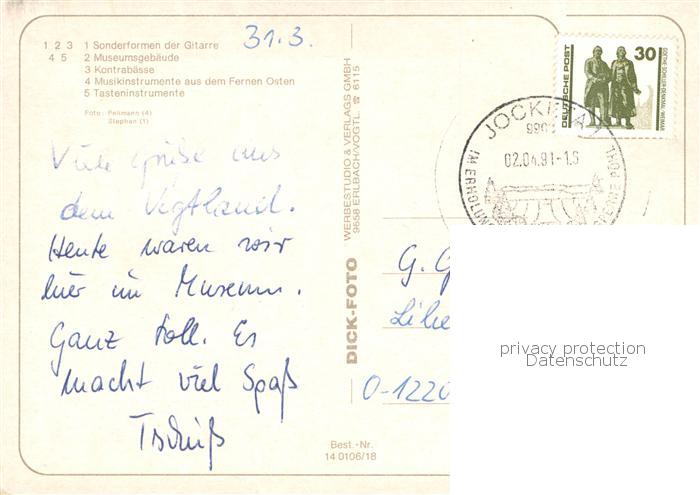 1 2 3 1 Sonderformen der Gitarre
4 5 2 Museumsgebäude
3 Kontrabässe
4 Musikinstrumente aus dem Fernen Osten
5 Tasteninstrumente
Foto: Pellmann (4)
Stephan (1)
31.3.
Viele Grüße aus
dem Vogtland.
Heute waren wir
hier im Museum.
Ganz toll. Es
macht viel Spaß
Tschüß
DICK-FOTO
WERBESTUDIO & VERLAGS GMBH
9658 ERLBACH/VOGTL. ☎ 6115
Best.-Nr.
14 0106/18
DEUTSCHE POST
30
GOETHE-SCHILLER-DENKMAL WEIMAR
02.04.91-1.6
G. G
O-1220
privacy protection
Datenschutz